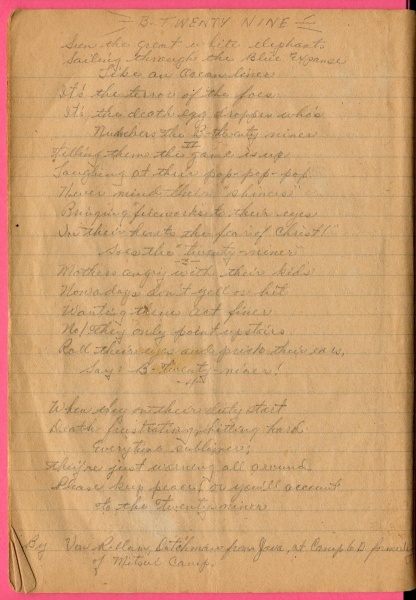 B. TWENTY NINE!
Seen the great white elephants
Sailing through the Blue Expanse
Like an Ocean liner
It's the terror of the foes
It's the death egg dropper who's
Numbers the B-twenty niner
II
Telling them the game is up
Laughing at their pop-pop-pop
Never mind their "shiners"
Bringing fireworks to their eyes
In their Hearts the fear of Christ!
Does the "twenty-niner"
III
Mothers angry with their kids
Nowadays don't yell or hit
Wanting them act finer
No! they only point upstairs
Roll their eyes and prick their ears,
Say: B-twenty-niners!
When they on their duty start
Death frustration, hitting hard
Everytime sublimer;
They're just warning all around
Please keep peace, or you'll account
to the Twenty-niner
By Van Dutchman from Java, at Camp 6 D. formerly
of Mitsui Camp.